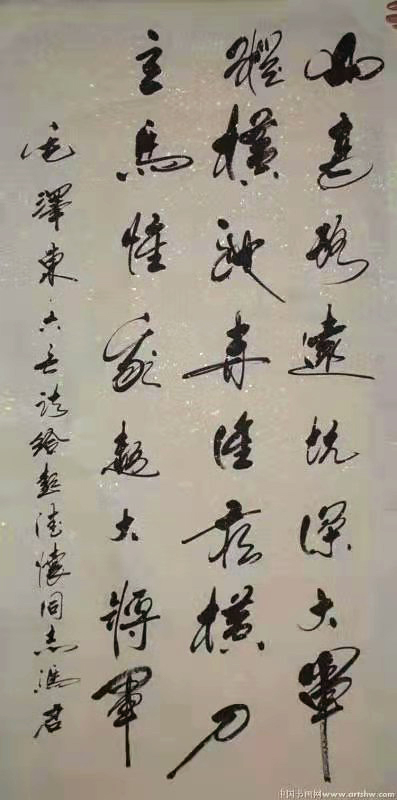 山高路遠坑深大軍
縱橫馳奔誰敢橫刀
立馬惟我彭大將軍
毛澤東六言詩給彭德懷同志馮君
中国书画网www.artshw.com